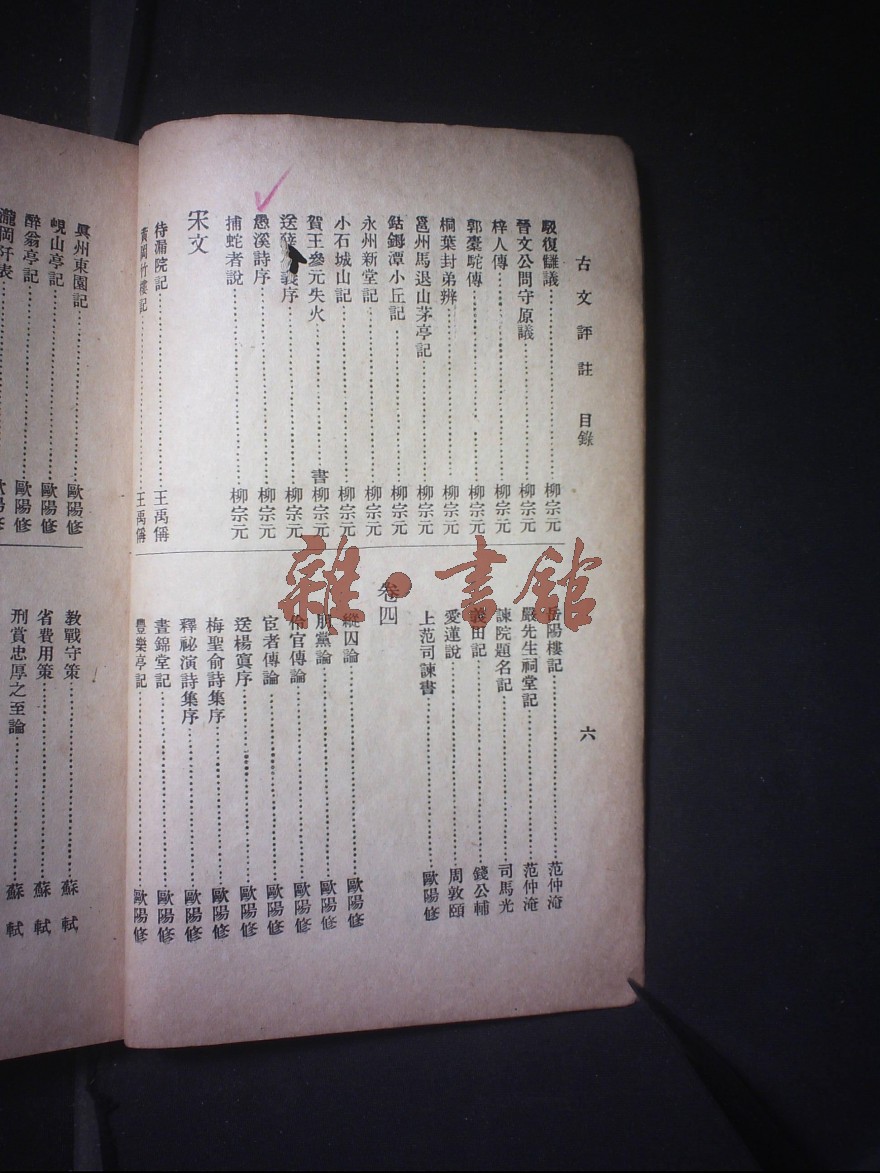 古文評註 目錄
六
駁復讎議……柳宗元
晉文公問守原議……柳宗元
梓人傳……柳宗元
郭橐駝傳……柳宗元
桐葉封弟辨……柳宗元
邕州馬退山茅亭記……柳宗元
鈷鉧潭小丘記……柳宗元
永州新堂記……柳宗元
小石城山記……柳宗元
賀王參元失火書……柳宗元
送薛 義序……柳宗元
愚溪詩序……柳宗元
捕蛇者說……柳宗元
宋文
待漏院記……王禹偁
黃岡竹樓記……王禹偁
岳陽樓記……范仲淹
嚴先生祠堂記……范仲淹
諫院題名記……司馬光
義田記……錢公輔
愛蓮說……周敦頤
上范司諫書……歐陽修
卷四
縱囚論……歐陽修
朋黨論……歐陽修
伶官傳論……歐陽修
宦者傳論……歐陽修
送楊寘序……歐陽修
梅聖俞詩集序……歐陽修
釋祕演詩集序……歐陽修
晝錦堂記……歐陽修
豐樂亭記……歐陽修
眞州東園記……歐陽修
峴山亭記……歐陽修
醉翁亭記……歐陽修
瀧岡阡表……歐陽修
教戰守策……蘇軾
省費用策……蘇軾
刑賞忠厚之至論……蘇軾
雜·書館